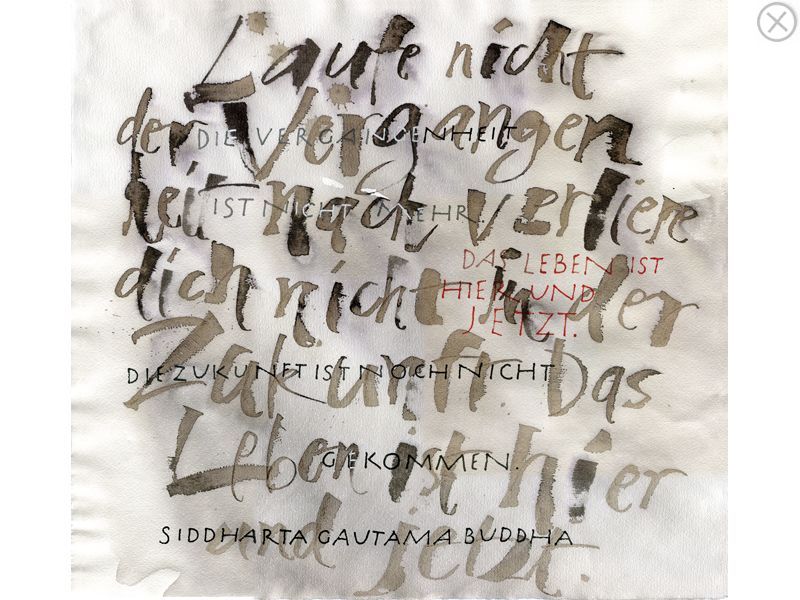 Laufe nicht
der Vergangen
DIE VERGANGENHEIT
heit nach verliere
IST NICHT MEHR.
DAS LEBEN IST
dich nicht in der
HIER UND
JETZT.
Zukunft. Das
DIE ZUKUNFT IST NOCH NICHT
Leben ist hier
GEKOMMEN.
und jetzt.
SIDDHARTA GAUTAMA BUDDHA